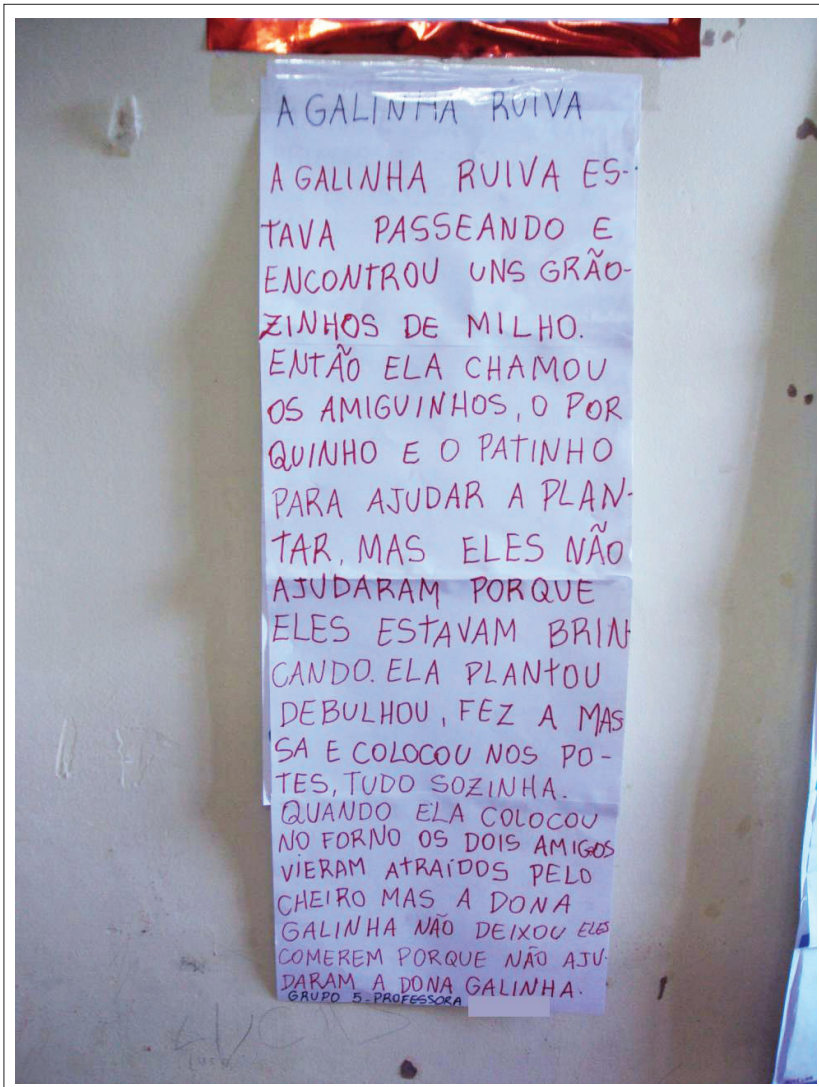 A GALINHA RUIVA
A GALINHA RUIVA ES-
TAVA PASSEANDO E
ENCONTROU UNS GRÃO-
ZINHOS DE MILHO.
ENTÃO ELA CHAMOU
OS AMIGUINHOS, O POR
QUINHO E O PATINHO
PARA AJUDAR A PLAN-
TAR, MAS ELES NÃO
AJUDARAM PORQUE
ELES ESTAVAM BRIN
CANDO. ELA PLANTOU
DEBULHOU, FEZ A MAS
SA E COLOCOU NOS PO-
TES, TUDO SOZINHA.
QUANDO ELA COLOCOU
NO FORNO OS DOIS AMIGOS
VIERAM ATRAÍDOS PELO
CHEIRO MAS A DONA
GALINHA NÃO DEIXOU ELES
COMEREM PORQUE NÃO AJU-
DARAM A DONA GALINHA.
GRUPO 5-PROFESSORA